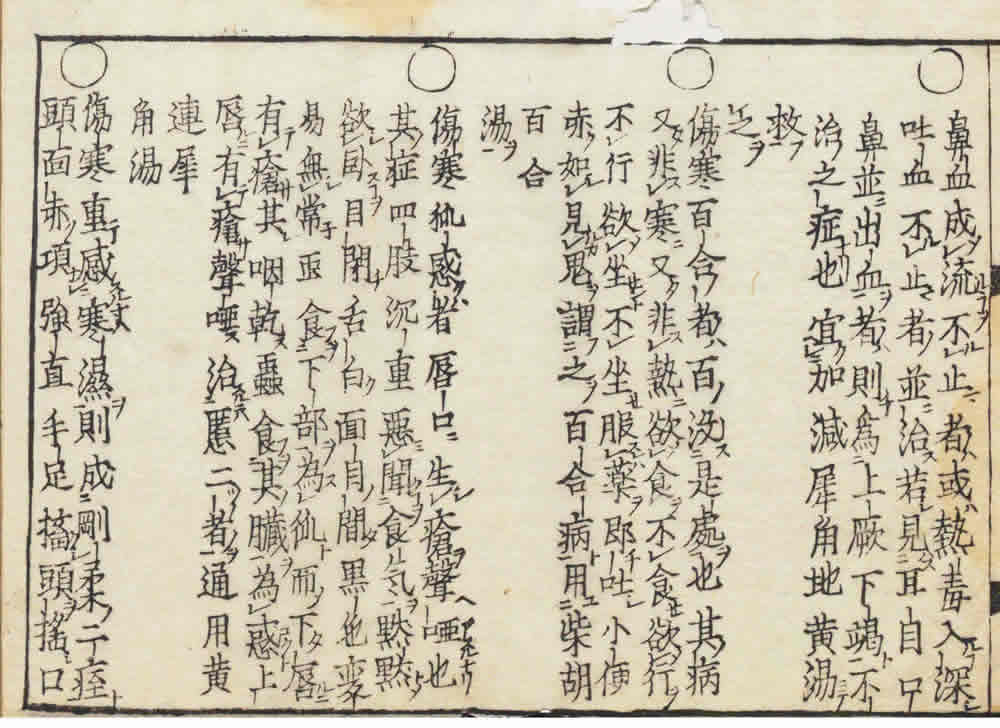 鼻血成流不止者或熱毒入深
吐血不止者並治若見耳自口
鼻並出血者則為上厥下竭不
治之症也宜加減犀角地黄湯
救
之
傷寒百合者百沒是處也其病
又非寒又非熱欲食不食欲行
不行欲坐不坐服薬即吐小便
赤如見鬼謂之百合病用柴胡
百合
湯
傷寒狐惑者唇口生瘡聲唖也
其症四肢沉重惡聞食気黙黙
欲臥目閉舌白面目間黒色変
易無常虫食下部為狐而下唇
有瘡其咽乾蟲食其臓為惑上
唇有瘡聲唖治䘌二者通用黄
連犀
角湯
傷寒重感寒濕則成剛柔二痓
頭面赤項強直手足搐頭搖口